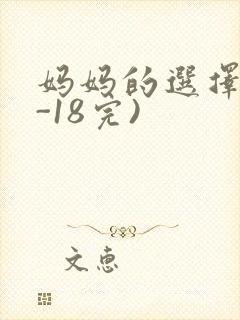 妈妈的選擇
-18完)
文惠